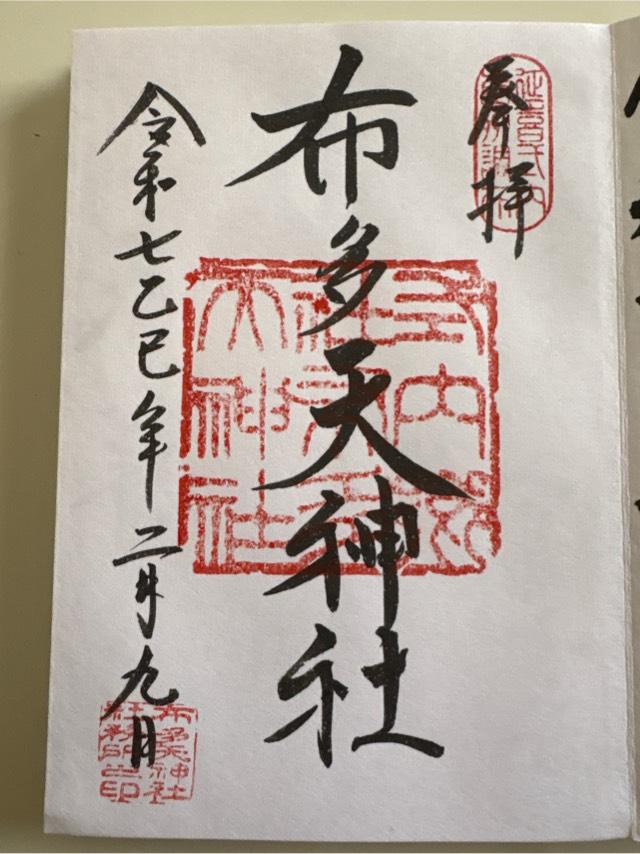 奉拝
延喜式内
布多天神社
式内郷
社布多
天神社
令和七乙巳年二月九日
布多天神社
社務所之印